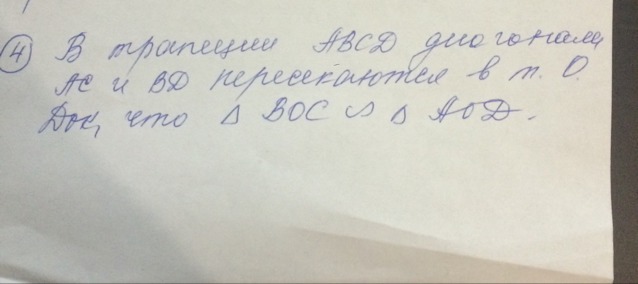 4 В трапеции ABCD диагонали
AC и BD пересекаются в т. O.
Док, что Δ BOC ∽ Δ AOD.